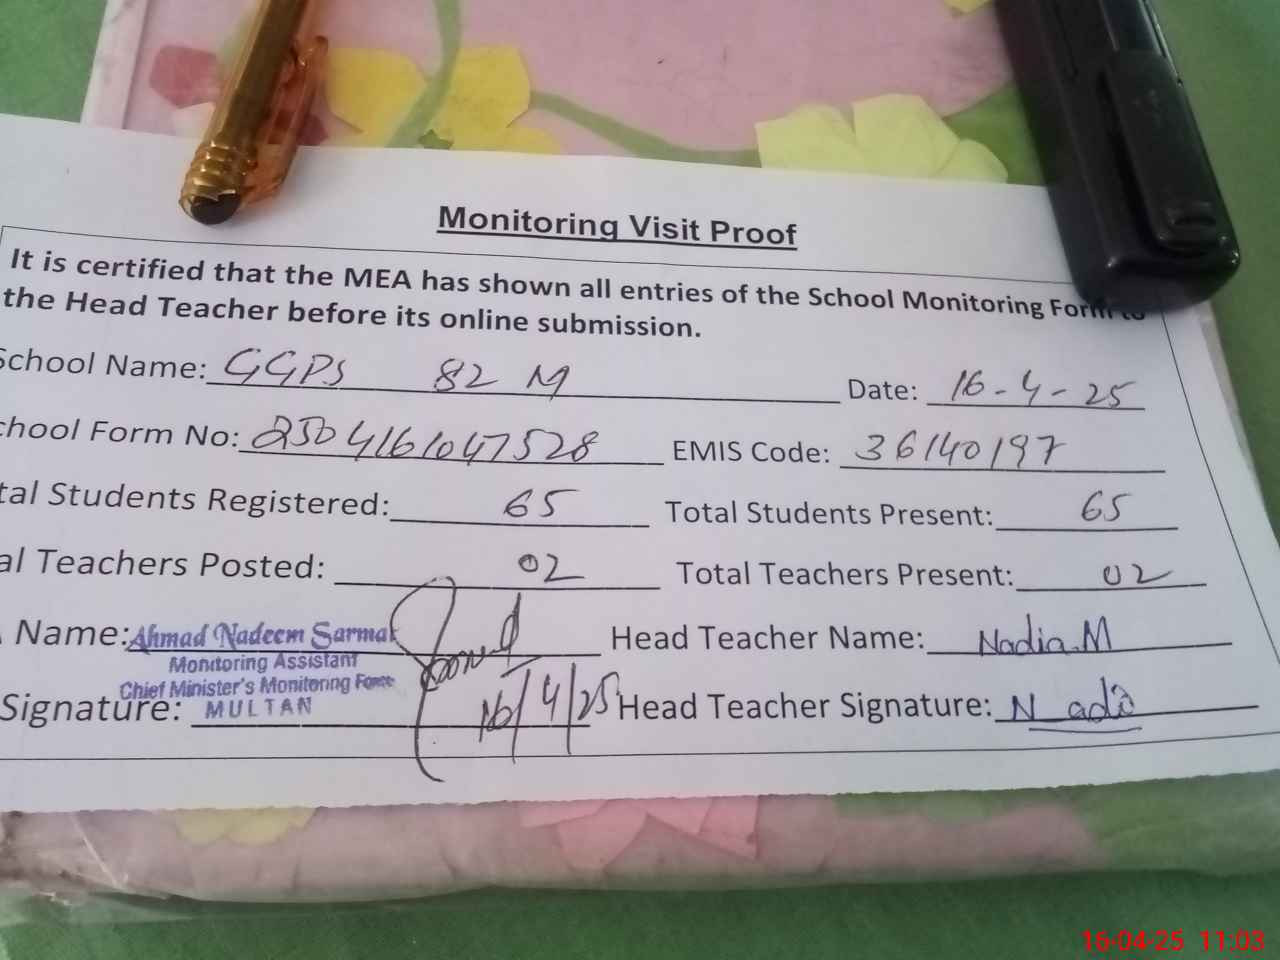 Monitoring Visit Proof
It is certified that the MEA has shown all entries of the School Monitoring Form to
the Head Teacher before its online submission.
School Name: GGPS 82 M Date: 16-4-25
chool Form No: 2504161047528 EMIS Code: 36140197
tal Students Registered: 65 Total Students Present: 65
al Teachers Posted: 02 Total Teachers Present: 02
Name: Ahmad Nadeem Sarmad Head Teacher Name: Nadia.M
Monitoring Assistant
Chief Minister's Monitoring Force
Signature: MULTAN 16/4/25 Head Teacher Signature: Nadi
16-04-25 11:03